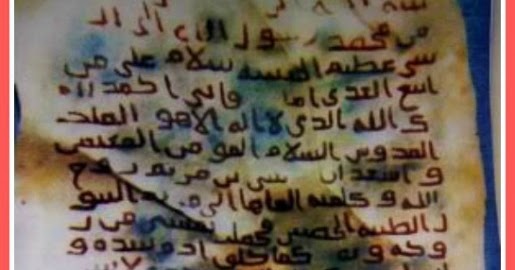 من محمد رسول الله الى ال
سى عظيم الحبسه سلام على من
اتبع الهدى اما فانى احمد الـ
ك الله الذى لا اله الا هو الملك
القدوس السلام المومن المهيمن
و اشهد ان عيسى بن مريم روح
الله و كلمته القاها الى مريم البتو
ل الطيبه الحصينه فحملت بعيسى من ر
وحه و كما خلق ادم بيده و